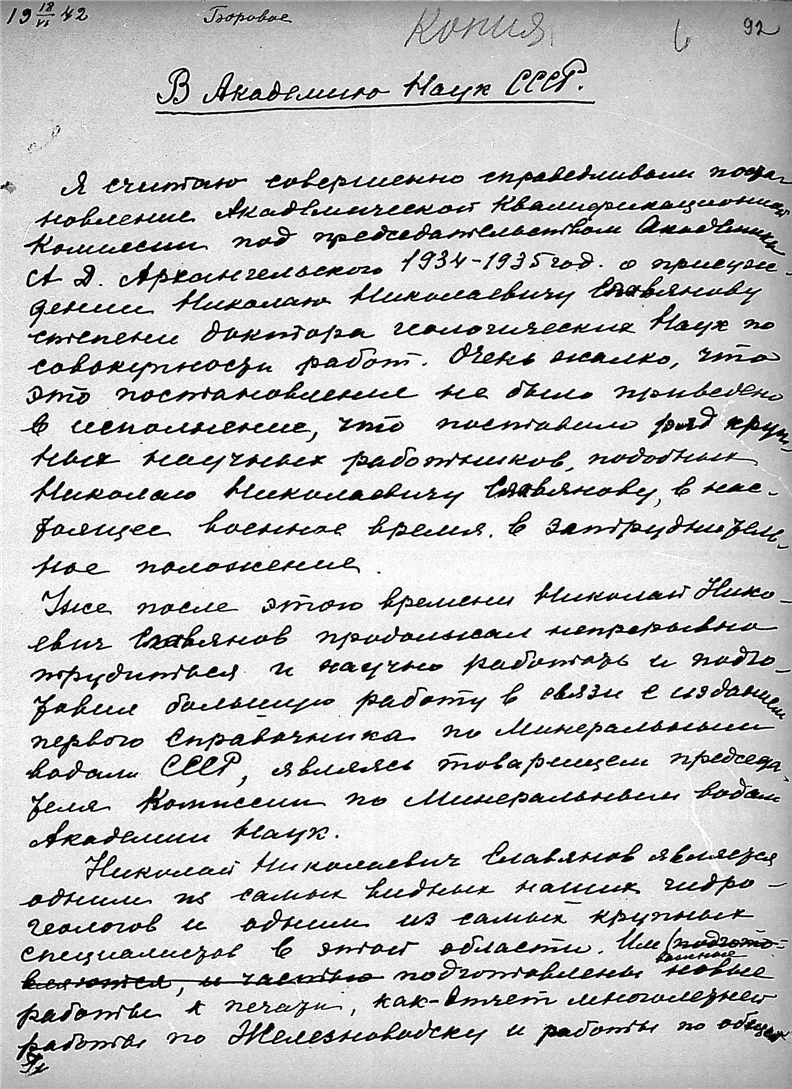 19 18/VI 42 Боровое Копия 92
В Академию Наук СССР.
Я считаю совершенно справедливым поста-
новление Академической Квалификационной
Комиссии под председательством Академика
А Д. Архангельского 1934-1935 год. о присуж-
дении Николаю Николаевичу Славянову
степени доктора геологических Наук по
совокупности работ. Очень жалко, что
это постановление не было приведено
в исполнение, что поставило ряд круп-
ных научных работников, подобных
Николаю Николаевичу Славянову, в нас-
тоящее военное время. в затруднитель-
ное положение.
Уже после этого времени Николай Нико-
евич Славянов продолжал непрерывно
трудиться и научно работать и подго-
товил большую работу в связи с изданием
первого Справочника по Минеральным
водам СССР, являясь товарищем председа-
теля Комиссии по Минеральным водам
Академии Наук.
Николай Николаевич Славянов является
одним из самых видных наших гидро-
геологов и одним из самых крупных
специалистов в этой области. Им (подгото-
вляются, и частью подготовлены важные новые
работы к печати, как-Отчет многолетней
работы по Железноводску и работы по общей